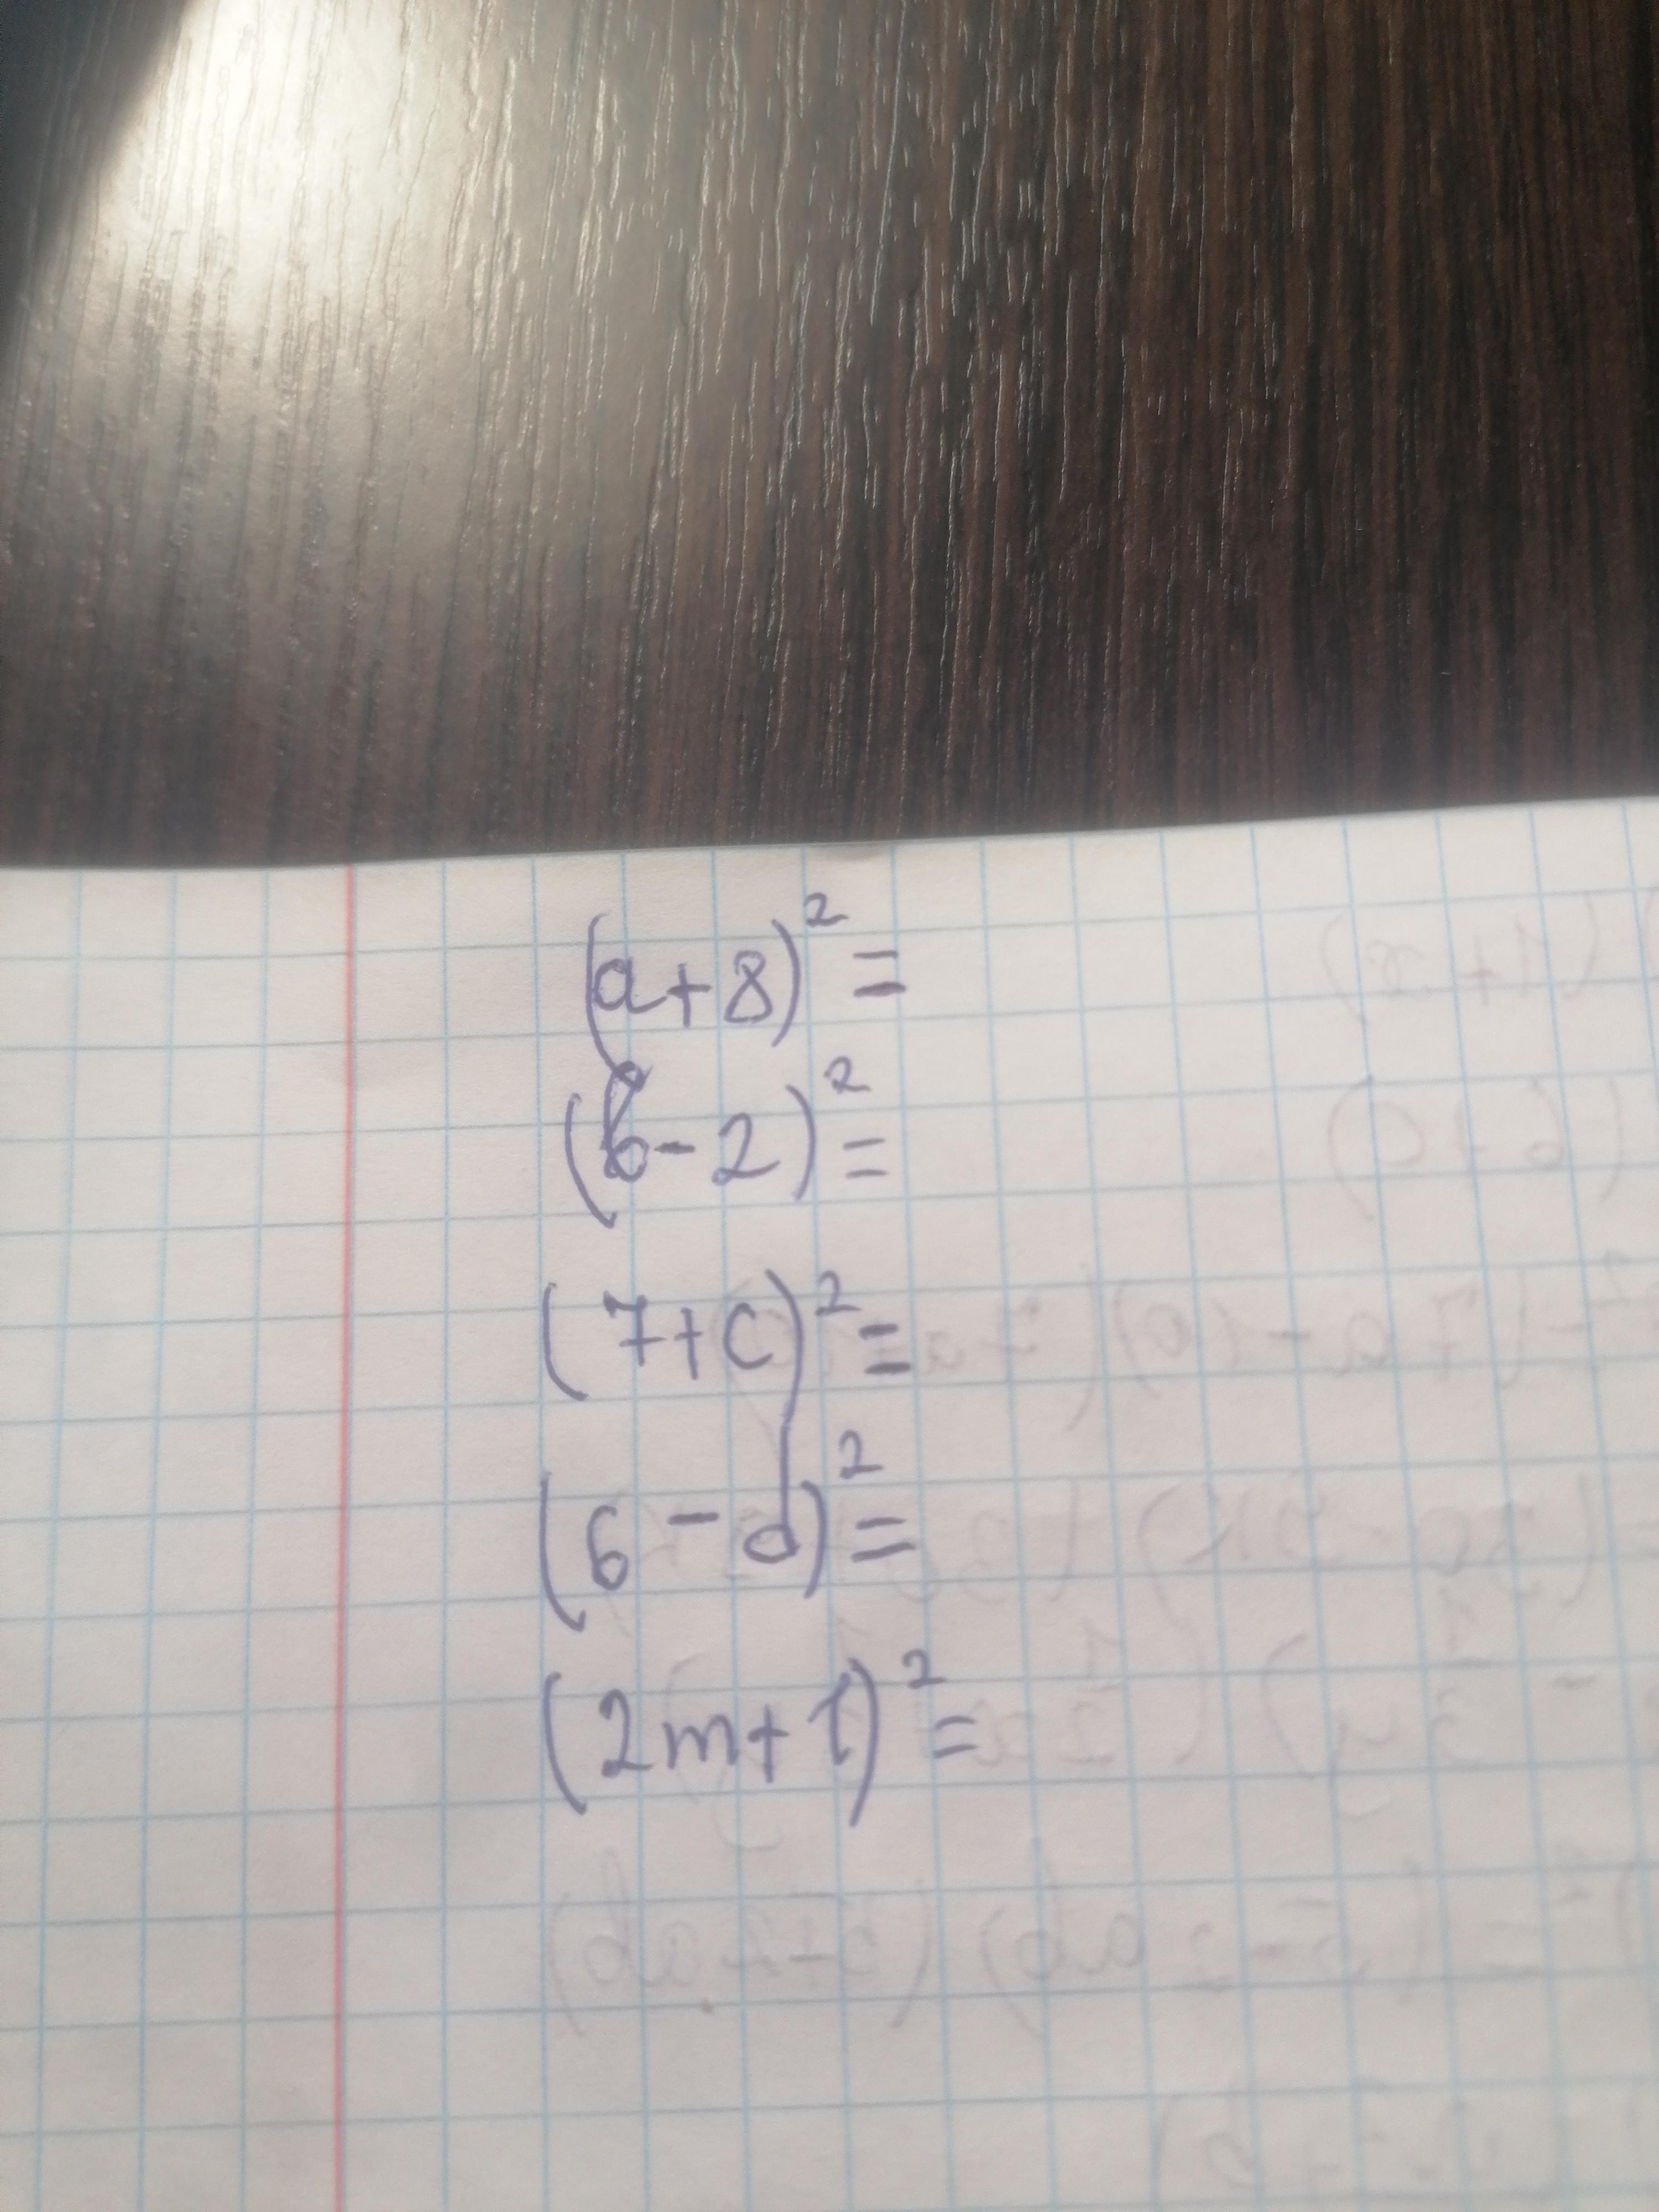 (a+8)²=
(b-2)²=
(7+c)²=
(6-d)²=
(2m+1)²=